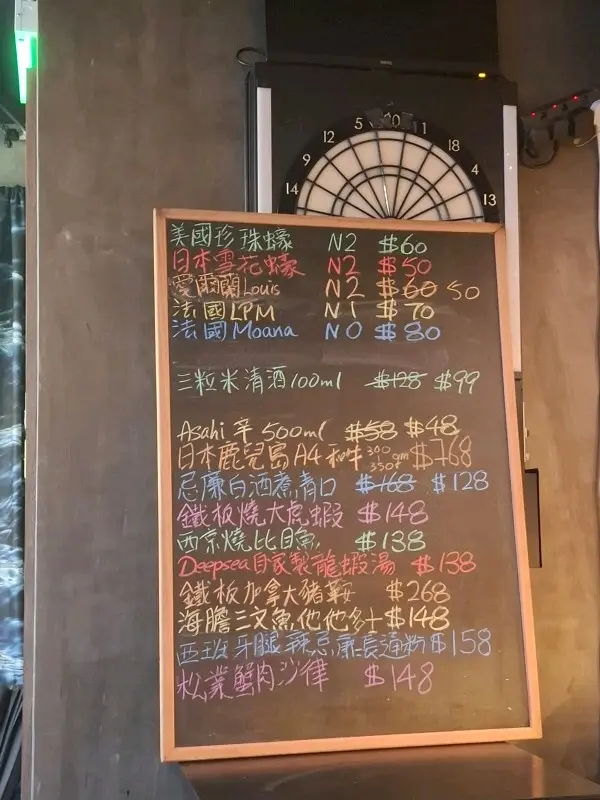 12 5 20 1 18
9 4
14 13
美國珍珠蠔 N2 $60
日本雪花蠔 N2 $50
愛爾蘭Louis N2 $60 50
法國LPM N1 $70
法國Moana N0 $80
三粒米清酒100ml $128 $99
Asahi 辛 500ml $58 $48
日本鹿兒島A4和牛 300-350gm $768
忌廉白酒煮青口 $168 $128
鐵板燒大虎蝦 $148
西京燒比目魚 $138
Deepsea自家製龍蝦湯 $138
鐵板加拿大豬鞍 $268
海膽三文魚他他多士 $148
西班牙腿辣忌廉長通粉 $158
松葉蟹肉沙律 $148